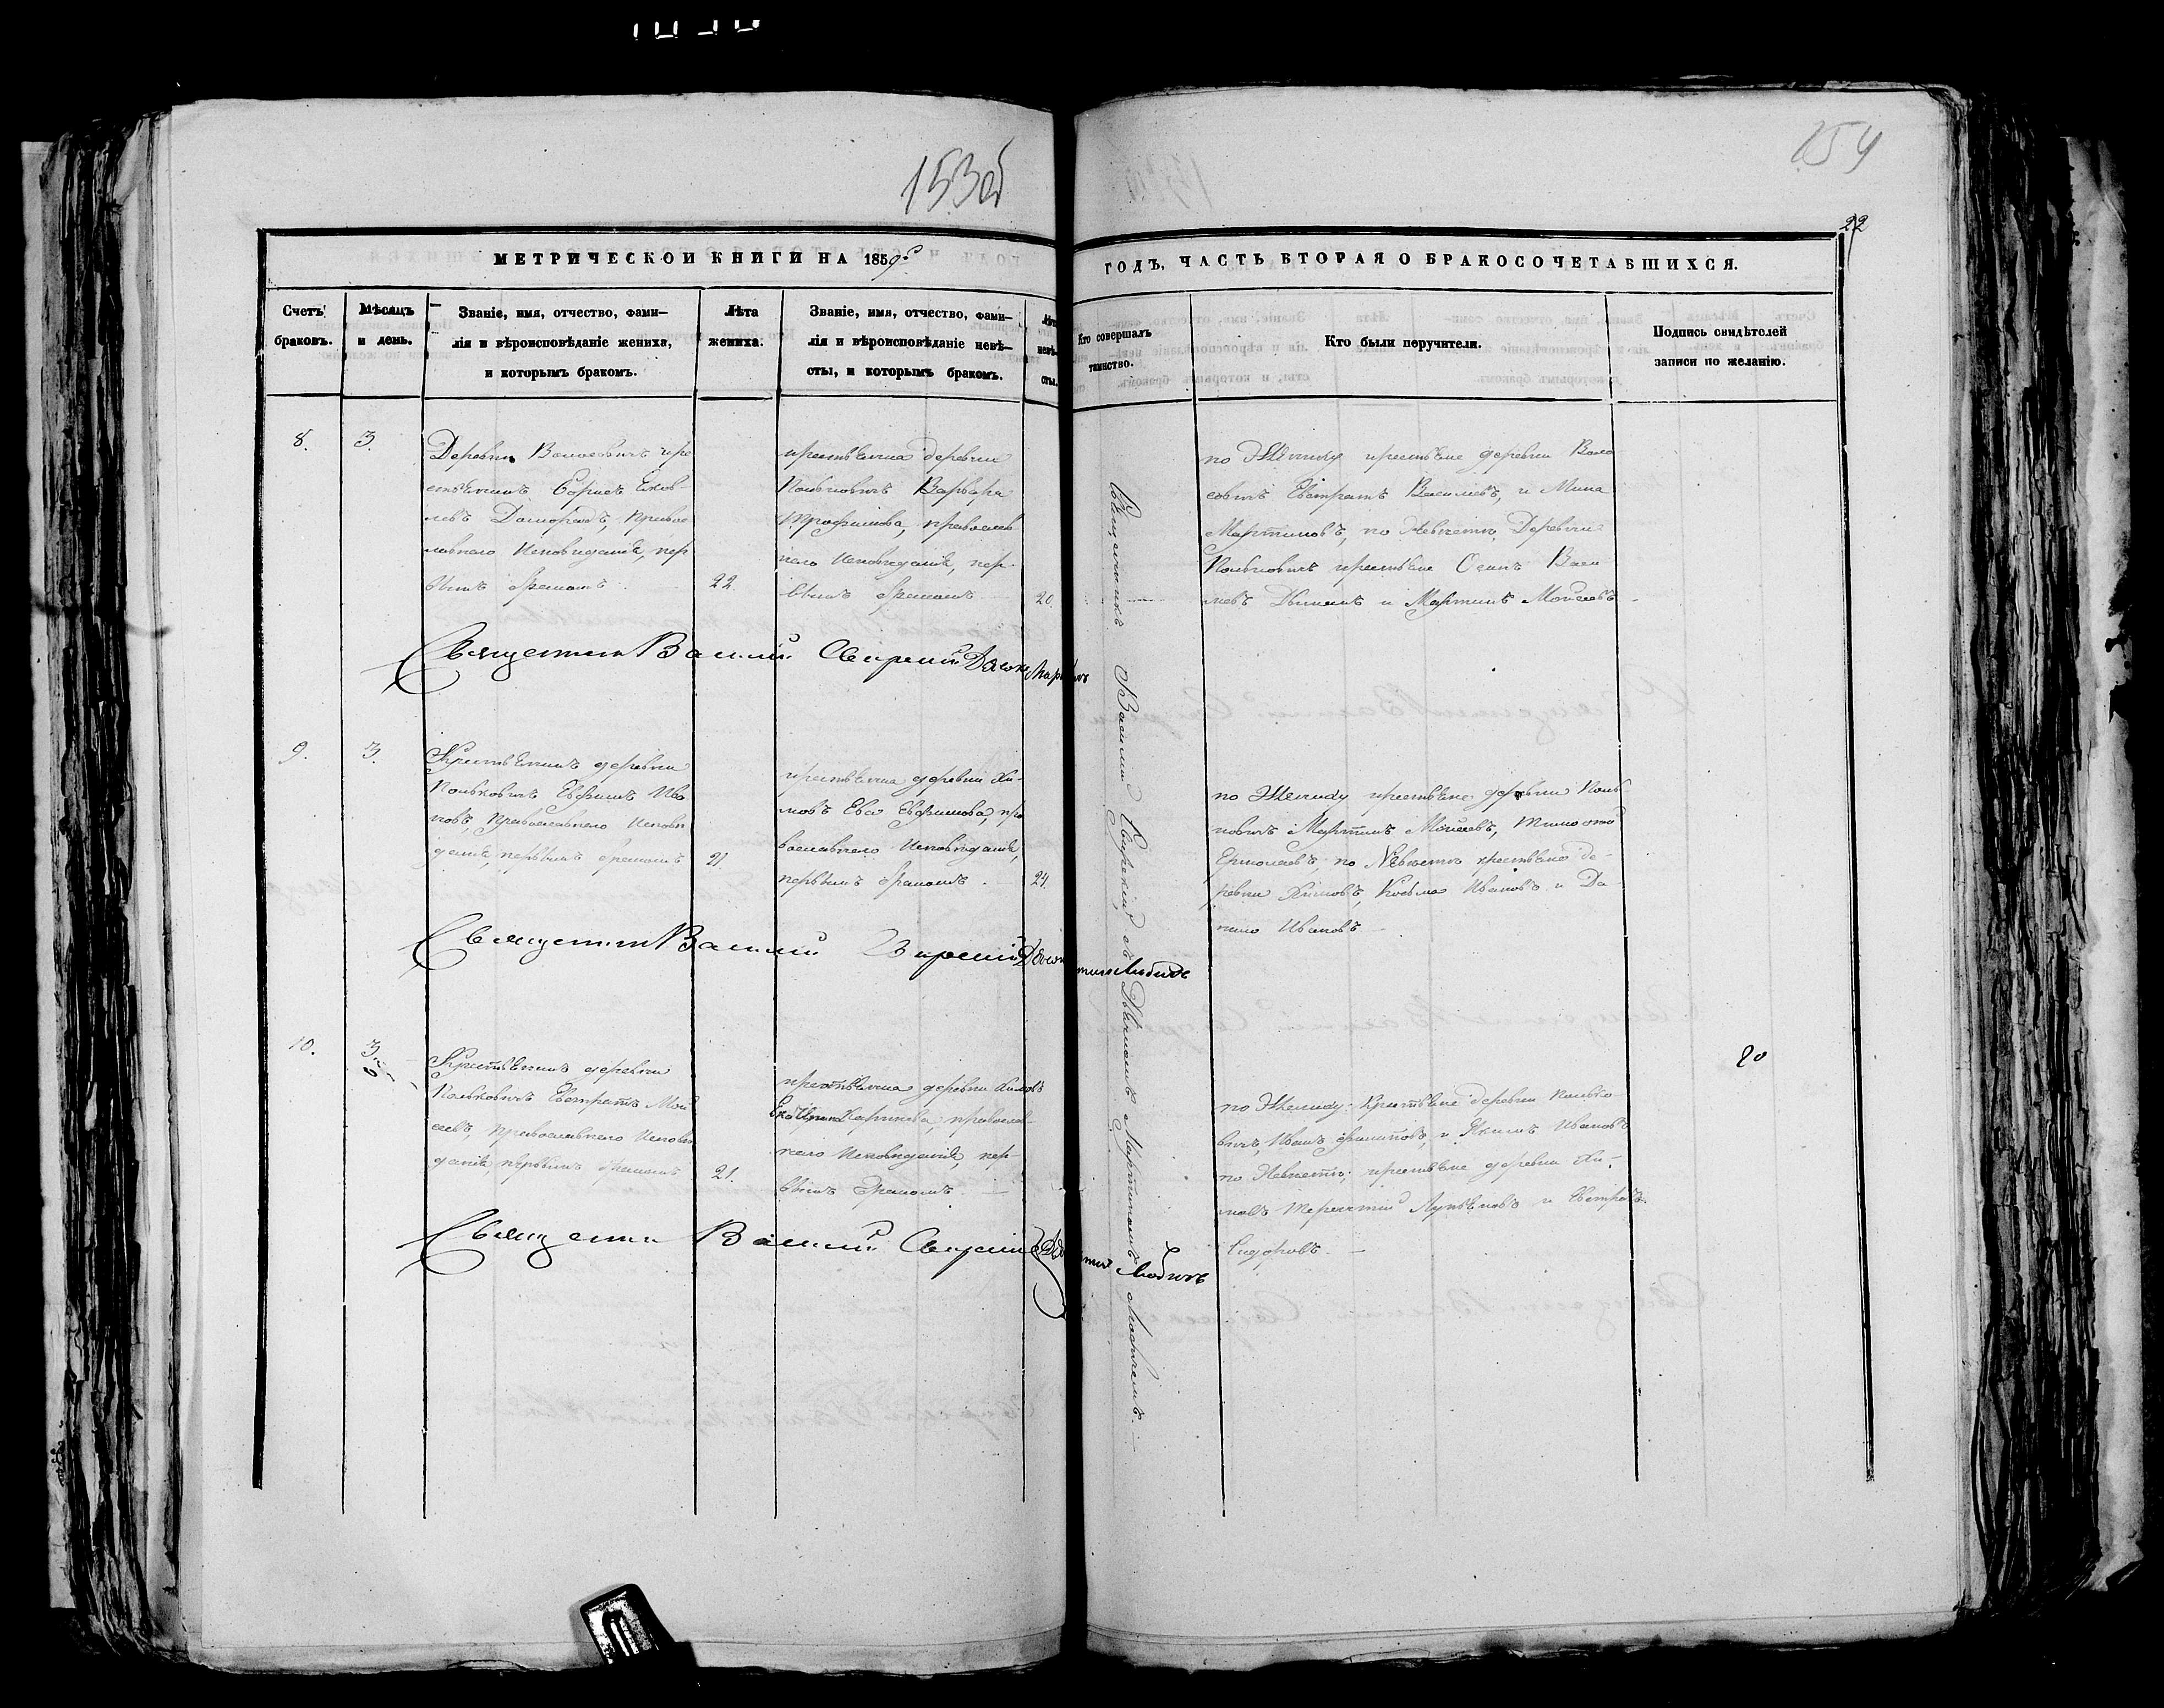 153об
154
22
МЕТРИЧЕСКОЙ КНИГИ НА 1859й
ГОДЪ, ЧАСТЬ ВТОРАЯ О БРАКОСОЧЕТАВШИХСЯ.
Счетъ
браковъ.
Мѣсяцъ
и день.
Званіе, имя, отчество, фами–
лія и вѣроисповѣданіе жениха,
и которымъ бракомъ.
Лѣта
жениха.
Званіе, имя, отчество, фами–
лія и вѣроисповѣданіе невѣ–
сты, и которымъ бракомъ.
Лѣта
невѣ–
сты.
Кто совершалъ
таинство.
Кто были поручители.
Подпись свидѣтелей
записи по желанію.
8.
3.
Деревни Волосовичъ кре
стьянинъ Борисъ Яков
левъ Доморадъ, Правос
лавнаго Исповѣданія, пер
вымъ бракомъ
22.
крестьянка деревни
Польковичъ Варвара
Трофимова, православ
наго Исповѣданія, пер
вымъ бракомъ
20.
по Жениху крестьяне деревни Воло
совичъ Евстратъ Василевъ, и Мина
Мартиновъ, по Невѣсты Деревни
Польковичъ крестьяне Осипъ Васи
левъ и Мартинъ Мойсеевъ
Священникъ Василій Свирскій Дьячк
9.
3.
Крестьянинъ деревни
Польковичъ Евфимъ Ива
новъ, Православнаго Исповѣ
данія, первымъ бракомъ
21.
крестьянка деревни Хи–
мовъ Ева Евфимова, пра
вославнаго Исповѣданія,
первымъ бракомъ.
24.
по Жениху крестьяне деревни Поль
ковичъ Мартинъ Мойсеевъ, Тимофей
Ермолаевъ, по Невѣсты крестьяне де–
ревни Химовъ, Козьма Ивановъ и Да
нило Ивановъ
Священникъ Василій Свирскій Дьячк
10.
3.
Крестьянинъ деревни
Польковичъ Евстратъ Мой
сеевъ, Православнаго Исповѣ
данія, первымъ бракомъ
21.
крестьянка деревни Химовъ
Карпова, православ–
наго Исповѣданія, пер–
вымъ бракомъ.
по Жениху: Крестьяне деревни Полько
вичъ, Иванъ Филиповъ, и Якимъ Ивановъ
по Невѣсты: крестьяне деревни Хи–
мовъ Терентій Лукьяновъ и
Сидоровъ.
20
Священникъ Василій Свирскій
Священникъ Василій Свирскій съ Дьячкомъ Мартиномъ